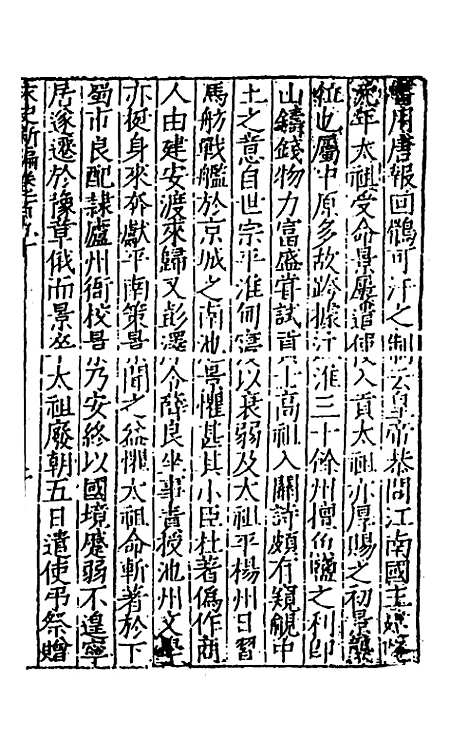 書用唐報回鶻可汗之制云皇帝恭問江南國主
元年太祖受命景屢遣使入貢太祖亦厚賜之初景襲
位也屬中原多故跨據江淮三十餘州擅魚鹽之利即
山鑄錢物力富盛嘗試貢士高祖入關詩頗有窺覦中
土之意自世宗平淮甸寖以衰弱及太祖平楊州日習
馬舫戰艦於京城之南池景懼甚其小臣杜著偽作商
人由建安渡來歸又彭澤令薛良坐事責授池州文學
亦挺身來奔獻平南策景聞之益懼太祖命斬著於下
蜀市良配隸廬州衙校景乃安終以國境蹙弱不遑寧
居遂遷於豫章俄而景卒太祖廢朝五日遣使弔祭贈
宋史新編卷